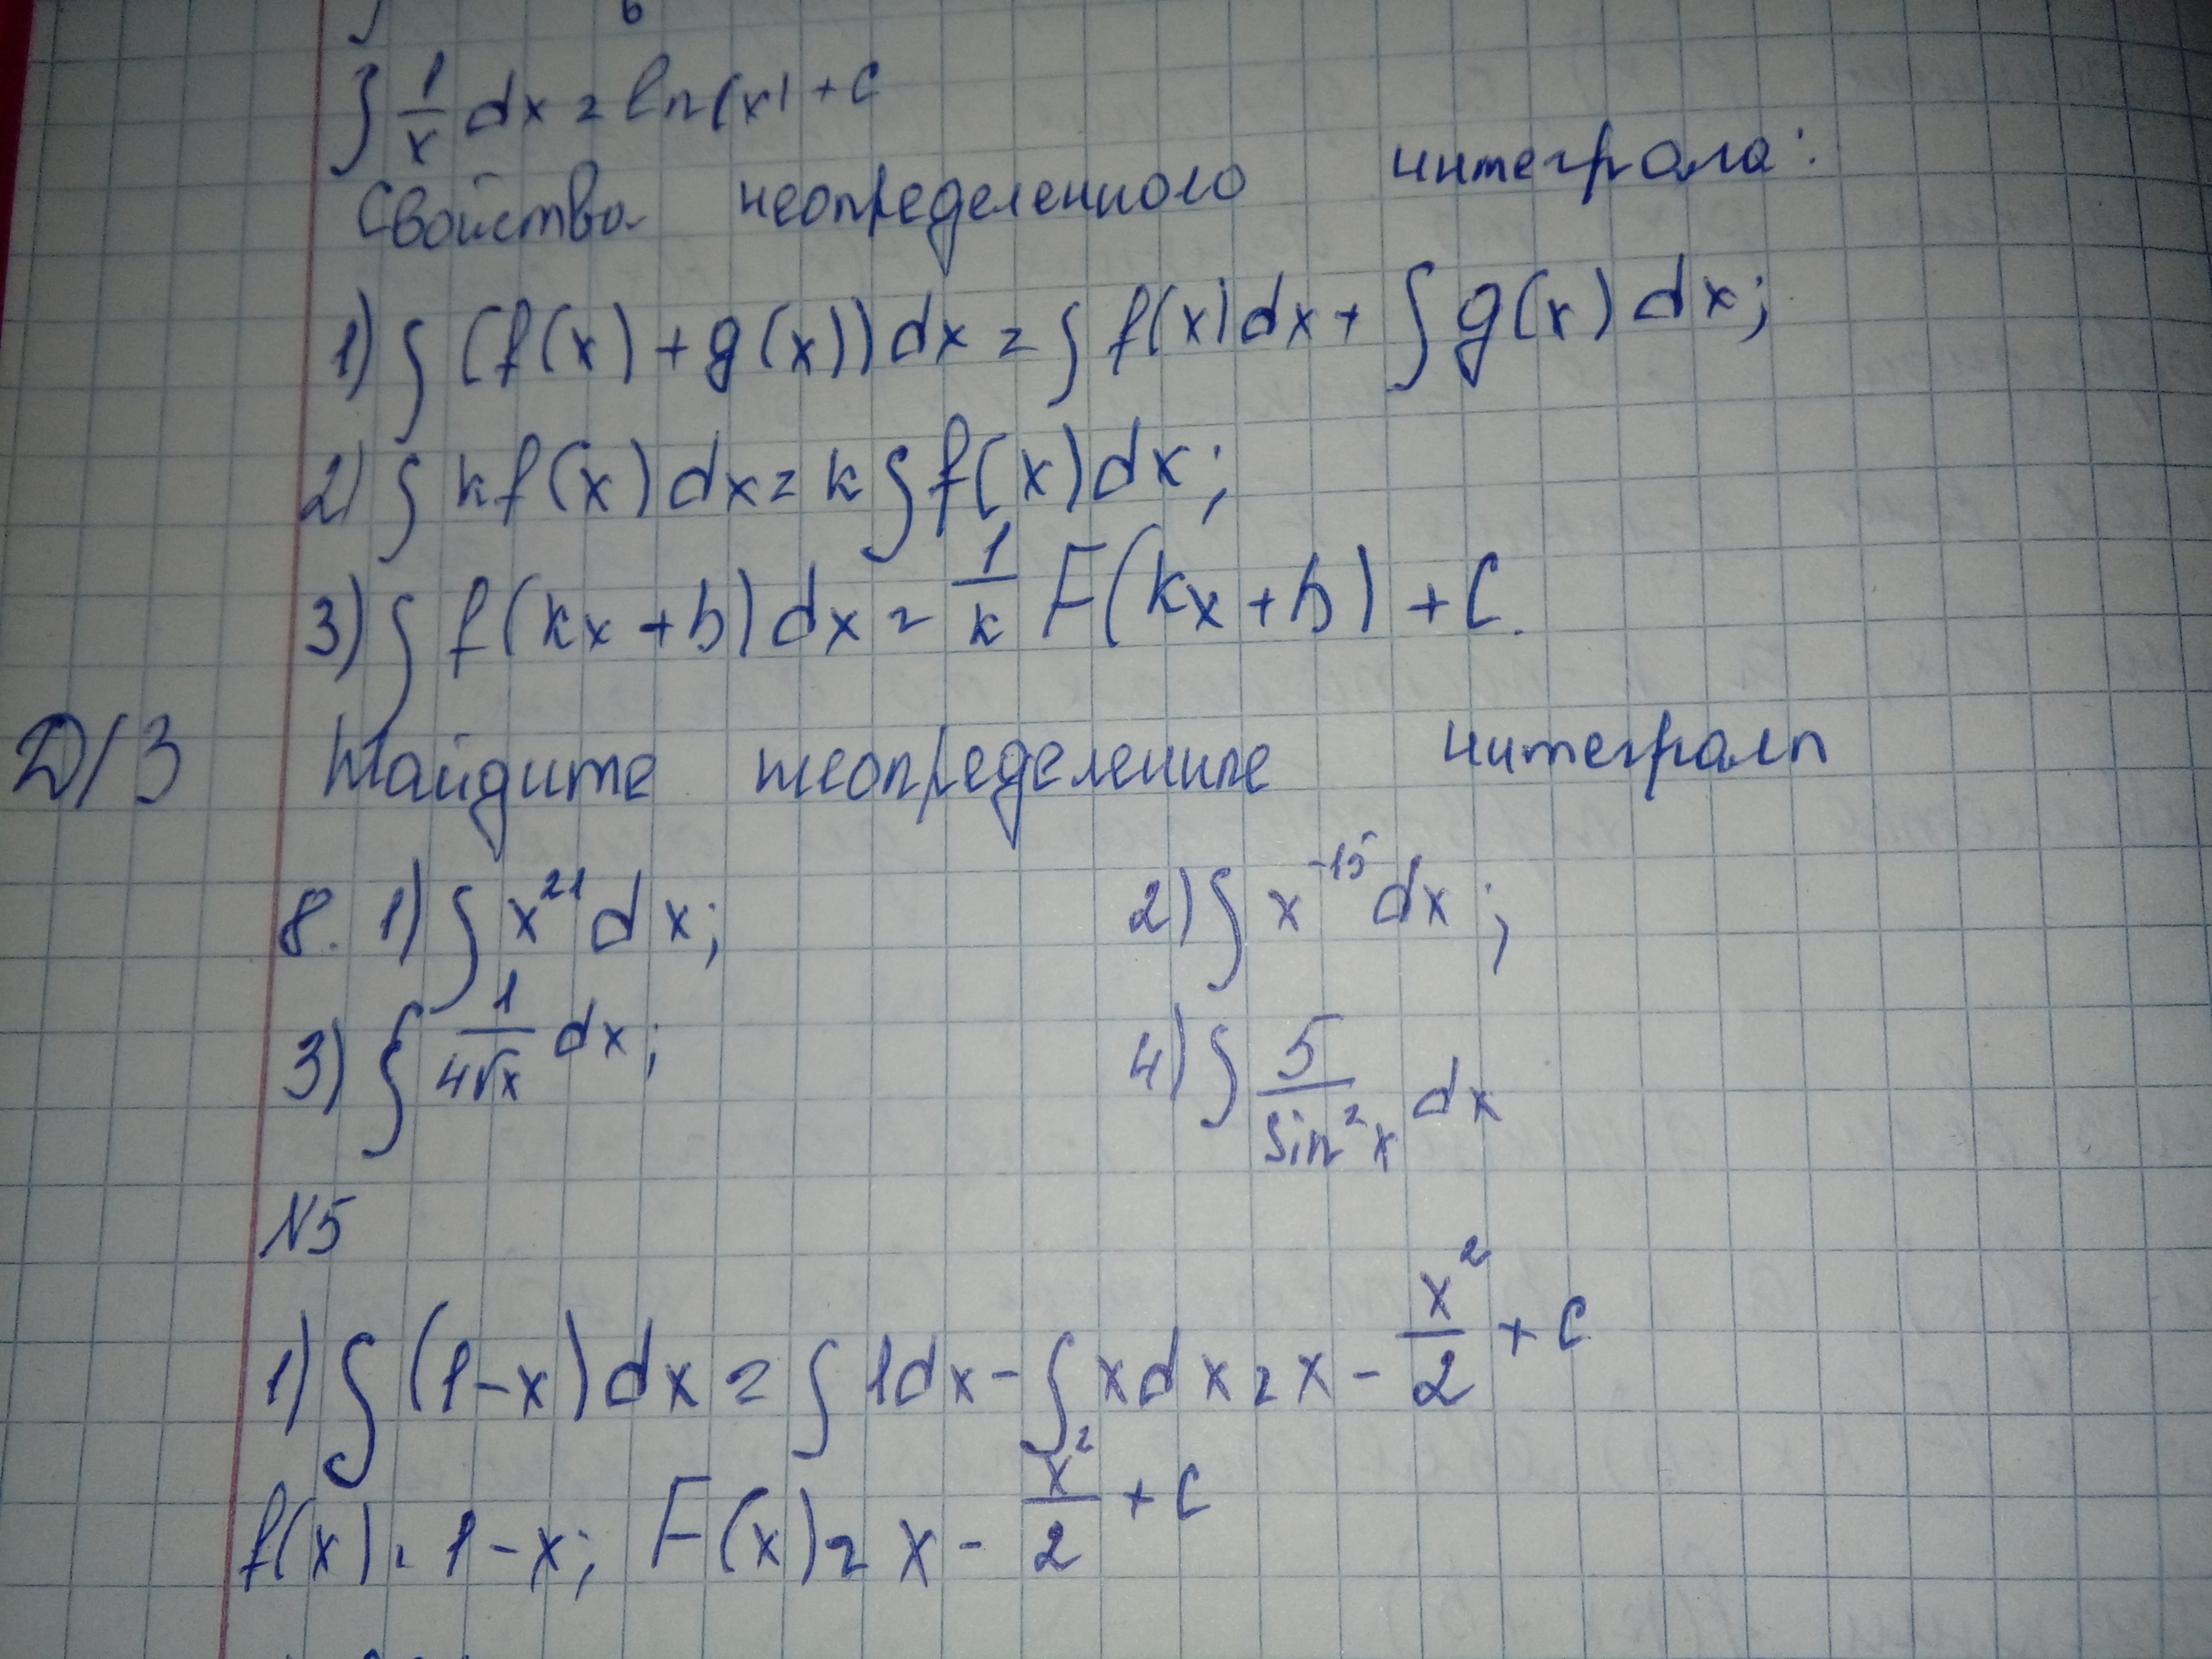 ∫ 1/x dx = ln(x) + C
Свойства неопределенного интеграла:
1) ∫ (f(x) + g(x)) dx = ∫ f(x) dx + ∫ g(x) dx;
2) ∫ kf(x) dx = k ∫ f(x) dx;
3) ∫ f(kx + b) dx = 1/k F(kx + b) + C.
Д/З Найдите неопределенные интегралы
8. 1) ∫ x^21 dx; 2) ∫ x^-15 dx;
3) ∫ 1/4√x dx; 4) ∫ 5/sin²x dx
N5
1) ∫ (1 - x) dx = ∫ 1dx - ∫ x dx = x - x²/2 + C
f(x) = 1 - x; F(x) = x - x²/2 + C